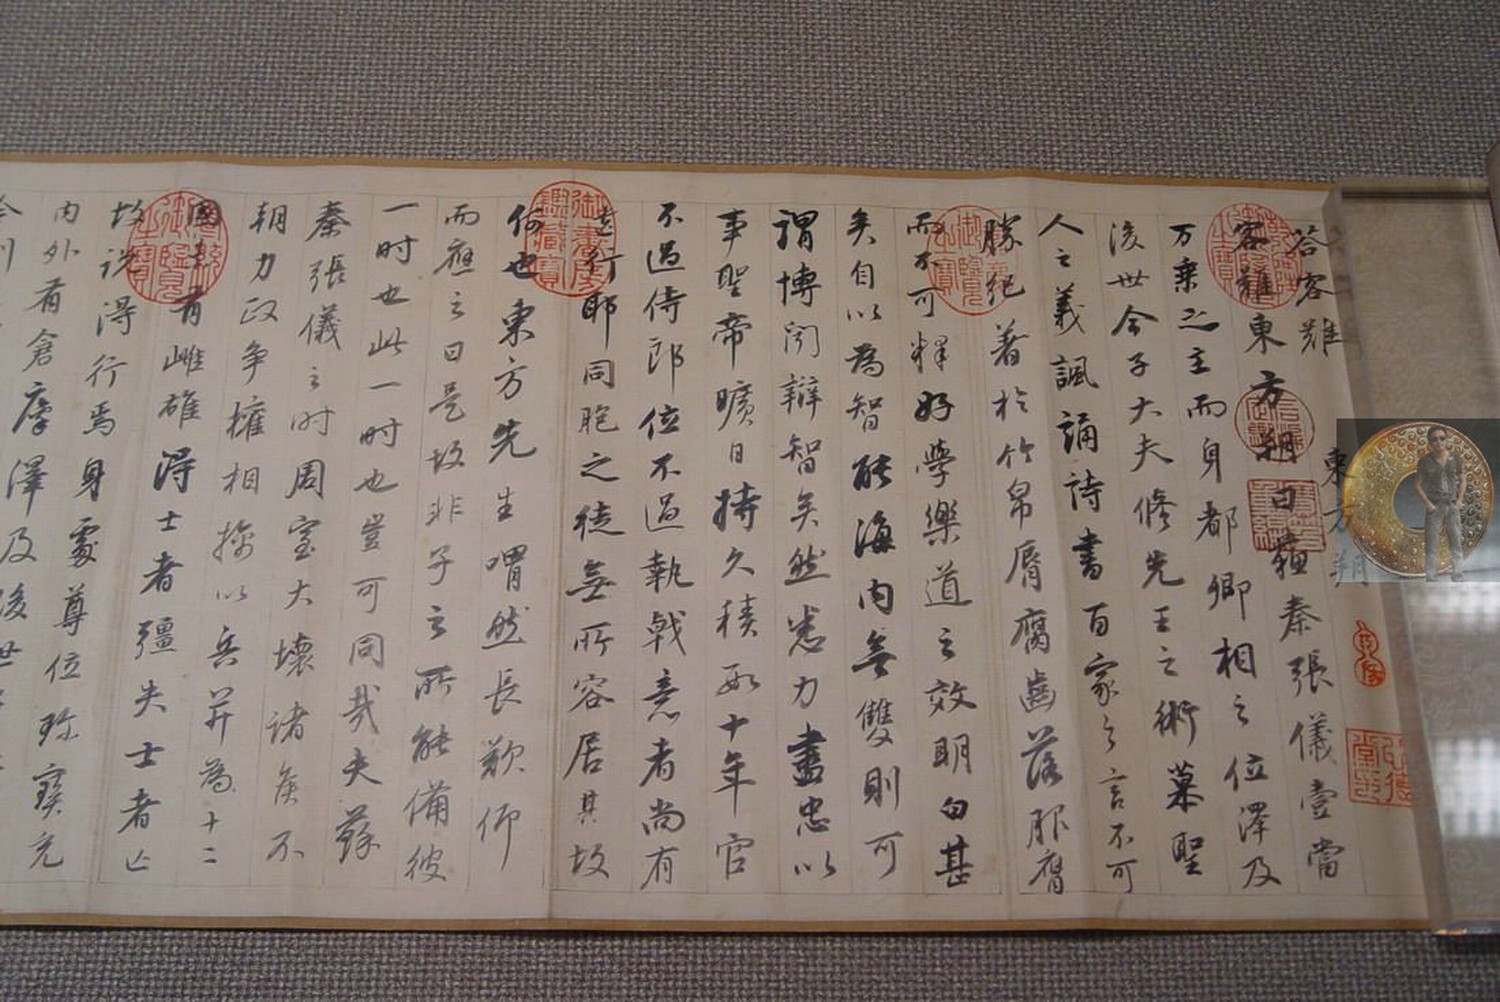 答客難 東方朔
客難東方朔曰蘓秦張儀壹當
万乗之主而身都卿相之位澤及
後世今子大夫修先王之術慕聖
人之義諷誦詩書百家之言不可
勝紀著於竹帛脣腐齒落服膺
而不可釋好學樂道之效明白甚
矣自以為智能海内無雙則可
謂博聞辯智矣然悉力盡忠以
事聖帝曠日持久積數十年官
不過侍郎位不過執戟意者尚有
遺行耶同胞之徒無所容居其故
何也東方先生喟然長歎仰
而應之曰是故非子之所能備彼
一时也此一时也豈可同哉夫蘇
秦張儀之时周室大壞諸侯不
朝力政争權相擒以兵并為十二
國未有雌雄得士者彊失士者亡
故说得行焉身處尊位珎寳充
内外有倉廩澤及後世